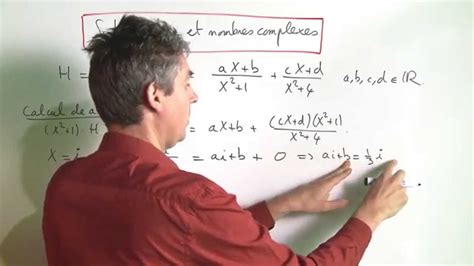 et nombres complexes
H = = (aX+b)/(X²+1) + (cX+d)/(X²+4) a,b,c,d ∈ ℝ.
Calcul de a
(X²+1). H = aX+b + ((cX+d)(X²+1))/(X²+4).
X = i = ai+b + 0 ⇒ ai+b = 1/3 i